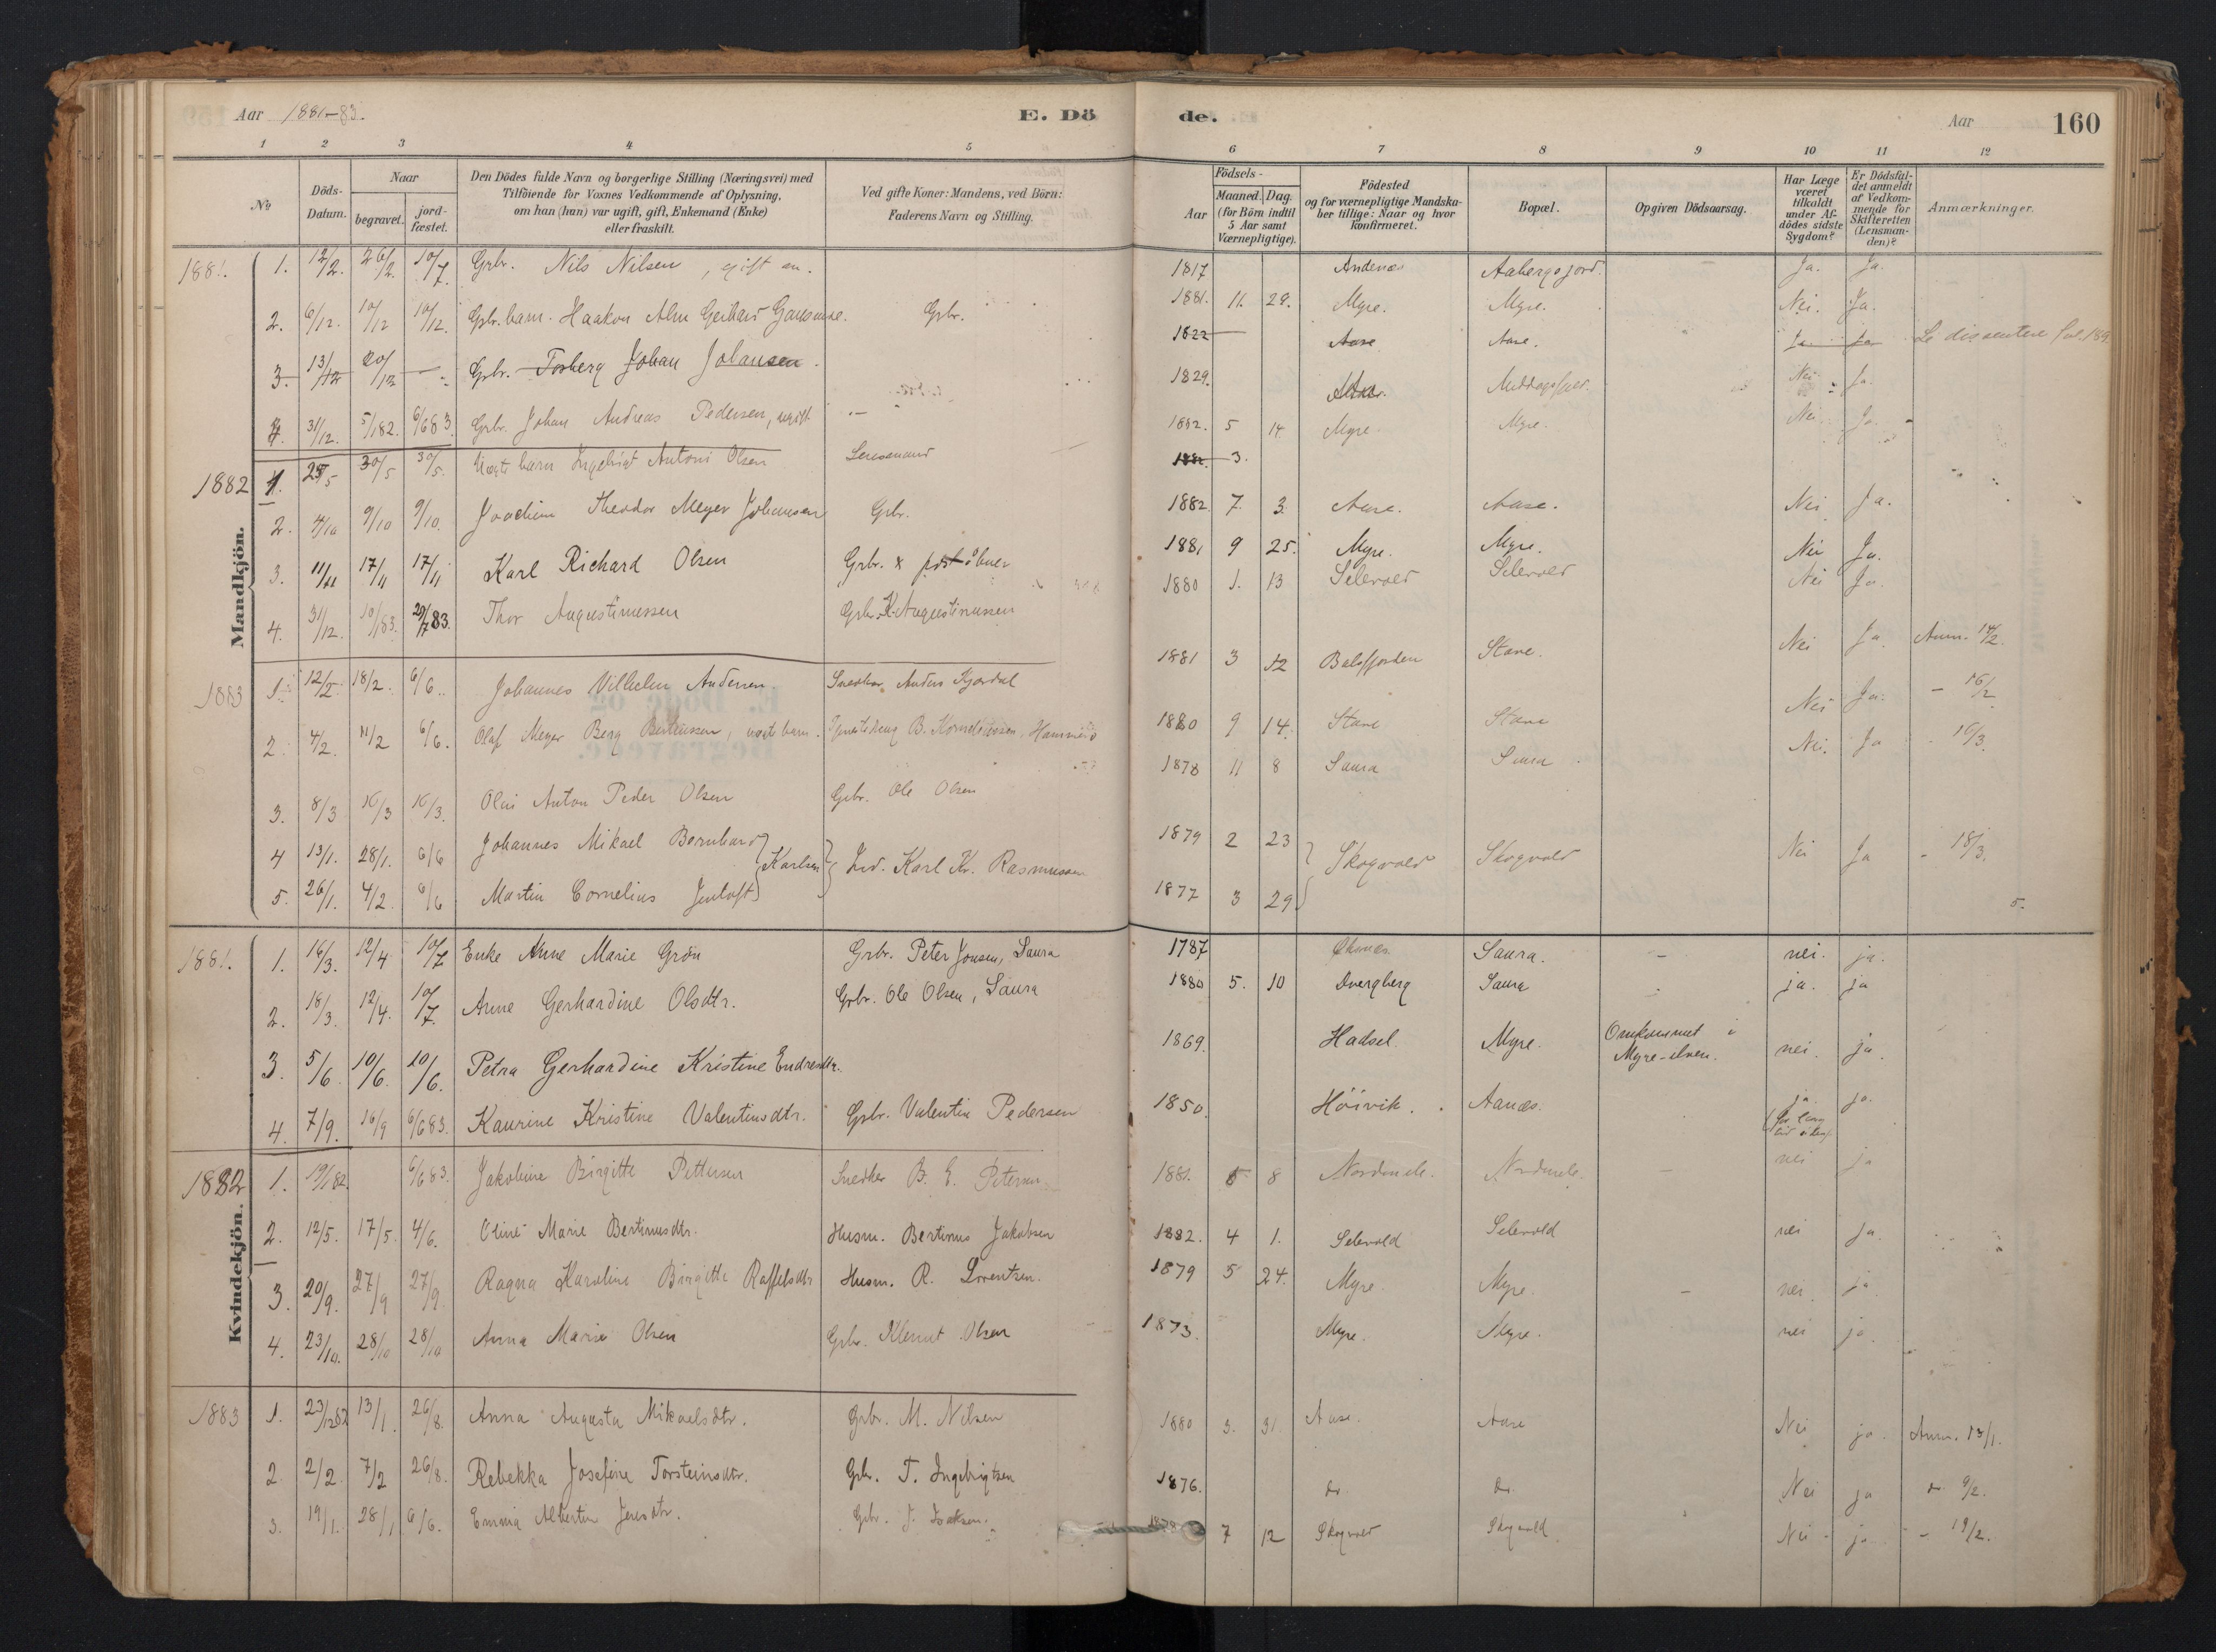 Aar 1881-83.
E. Dö
de.
Aar
160
1 2 3 4 5 6 7 8 9 10 11 12
№
Döds-Datum.
Naar
begravet.
jord-fæstet.
Den Dödes fulde Navn og borgerlige Stilling (Næringsvei) med
Tilföiende for Voxnes Vedkommende af Oplysning,
om han (hun) var ugift, gift, Enkemand (Enke)
eller fraskilt.
Ved gifte Koner: Mandens, ved Börn:
Faderens Navn og Stilling.
Födsels-
Aar
Maaned. Dag.
(for Börn indtil
5 Aar samt
Værnepligtige).
Födested
og for værnepligtige Mandska-
ber tillige: Naar og hvor
konfirmeret.
Bopæl.
Opgiven Dödsaarsag.
Har Læge
været
tilkaldt
under Af-
dödes sidste
Sygdom?
Er Dödsfal-
det anmeldt
af Vedkom-
mende for
Skifteretten
(Lensman-
den)?
Anmærkninger.
Mandkjön.
1881. 1. 12/2. 26/2. 10/7. Grbr. Nils Nilsen, gift 1817 Andenæs Ja. Ja.
2. 6/12. 10/12 10/12. Grbr. barn. Haakon Alm Gerhard Grbr. 1881. 11. 29. Myre. Myre. Nei. Ja.
3. 13/12 20/12 Grbr. Torberg Johan Johansen 1822 Aase Aase. Ja Ja Se dissentere fol. 189
4. 31/12. 5/1 82. 6/6 83. Grbr. Johan Andreas Pedersen, ugift 1829. Nei Ja.
1882 1. 25/5 30/5 30/5. Uægt barn Ingebrigt Antoni Olsen Lensmand 1882. 5 14 Myre. Myre. Nei Ja
1882. 3.
2. 4/10 9/10 9/10. Joachim Theodor Meyer Johansen Grbr. 1882 7. 3. Aase. Aase. Nei Ja.
3. 11/11 17/11 17/11 Karl Richard Olsen Grbr. x poståbner 1881 9 25. Myre. Myre. Nei Ja.
4. 31/12. 10/1 83. 29/7 83. Thor Augustinussen Grbr. K. Augustinussen 1880 1. 13 Selevold Selevold Nei Ja.
1883 1. 12/2 18/2. 6/6. Johannes Vilhelm Andersen Snedker Anders Kjordal 1881 3 12 Balsfjorden Stave. Nei Ja Anm. 14/2.
2. 4/2. 11/2 6/6. Olaf Meyer Berg Berteussen, uægt barn. B. Korneliussen, 1880 9 14. Stave Stave Nei Ja. - 16/2
3. 8/3 16/3 16/3. Olai Anton Peder Olsen Grbr. Ole Olsen 1878 11 8 Saura Saura Nei. Ja - 16/3.
4 13/1. 28/1. 6/6 Johannes Mikael Bernhard } Karlsen } Ind. Karl Kr. Rasmussen 1879 2 23 } Skogvold Skogvold Nei Ja - 18/3.
5. 26/1. 4/2. 6/6 Martin Cornelius Jentoft 1877 3 29
5.
Kvindekjön.
1881. 1. 16/3. 12/4 10/7 Enke Anne Marie Grön Grbr. Peter Jonsen, Saura 1787 Öksnæs Saura. - nei. ja.
2. 18/3. 12/4. 10/7. Anne Gerhardine Olsdtr. Grbr. Ole Olsen, Saura 1880 5. 10 Dvergberg Saura ja. ja
3. 5/6. 10/6. 10/6. Petra Gerhardine Kristine Endresdtr. 1869. Hadsel. Myre. Omkommet i Myre-elven. nei. ja.
4. 7/9. 16/9 6/6 83. Kaurine Kristine Valentinsdtr. Grbr. Valentin Pedersen 1850. Höivik. Aanæs. ja ja
1882 1. 19/1 82. 6/6 83. Jakobine Birgitte Pettersen Snedker B. E. Petersen 1881. 5 8 Nordmele. Nordmele. - nei ja
2. 12/5. 17/5. 4/6. Oline Marie Bertinusdtr. Husm. Bertinus Jakobsen 1882. 4 1. Selevold Selevold nei ja.
3. 20/9. 27/9 27/9. Ragna Karoline Birgitte Raffelsdtr Husm. R. Lorentsen. 1879 5 24. Myre. Myre. - nei. ja
4. 23/10. 28/10 28/10 Anna Marie Olsen Grbr. Klemet Olsen 1873. Myre. Myre. nei ja.
1883 1. 23/12 82 13/1. 26/8. Anna Augusta Mikaelsdtr. Grbr. M. Nilsen 1880 3. 31. Aase. Aase Nei ja. Anm. 13/1.
2. 2/2. 7/2 26/8. Rebekka Josefine Torsteinsdtr. Grbr. T. Ingebrigtsen 1876. do. do. Nei ja do. 9/2.
3. 19/1. 28/1 6/6. Emma Albertine Jensdtr. Grbr. J. Isaksen. 1878 7 12 Skogvold Skogvold Nei ja - 19/2.